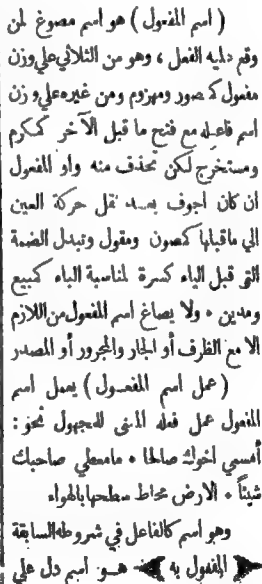 ( اسم المفعول ) هو اسم مصوغ لمن
وقع عليه الفعل ، وهو من الثلاثي علي وزن
مفعول كـ صور ومهزوم ومن غيره علي وزن
اسم فاعله مع فتح ما قبل الآخر كمكرم
ومستخرج لكن تحذف منه واو المفعول
ان كان اجوف بعد نقل حركة العين
الي ماقبلها كمصون ومقول وتبدل الضمة
التي قبل الياء كسرة لمناسبة الياء كمبيع
ومدين ٠ ولا يصاغ اسم المفعول من اللازم
الا مع الظرف أو الجار والمجرور أو المصدر
( عمل اسم المفعول ) يعمل اسم
المفعول عمل فعله المبني للمجهول نحو :
أمسمي اخوك صالحا ٠ مامعطي صاحبك
شيئاً ٠ الارض محاط سطحها بالهواء
وهو اسم كالفاعل في شروطه السابقة
المفعول به هـو : اسم دل علي